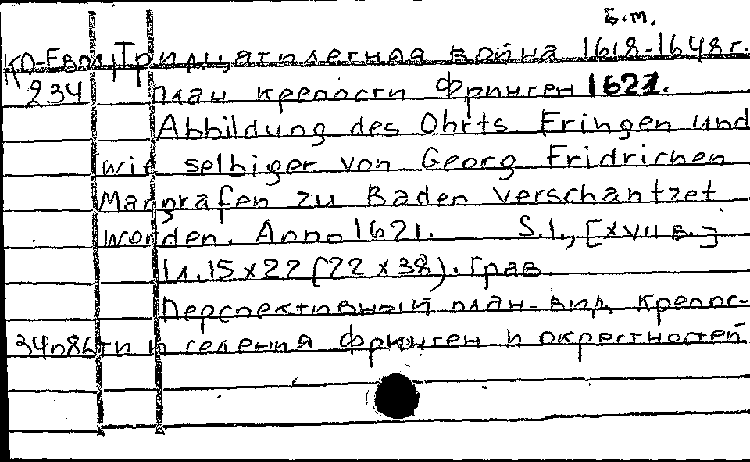 Б.м.
КО-Евод, Тридцатилетная война 1618-1648 г.
934 План крепости Фринген 1621.
Abbildung des Ohrts Eringen und
wie selbiger von Georg Fridrichen
Marggrafen zu Baden verschantzet
worden. Anno 1621. S.l., [XVII в.]
1 л. 15 x 22 (22 x 38). Грав.
Перспективный план-вид крепос-
34086 ти и селения Фринген и окрестностей